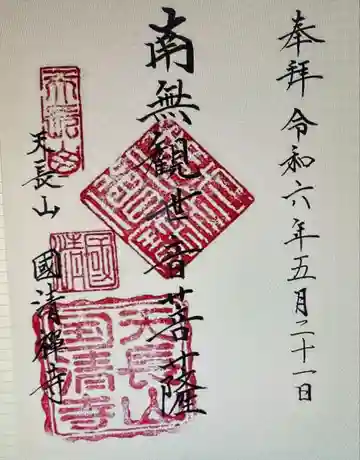 奉拝 令和六年五月二十一日
南無観世音菩薩
天長山 國清禅寺
天長山
國清
天長山國清寺